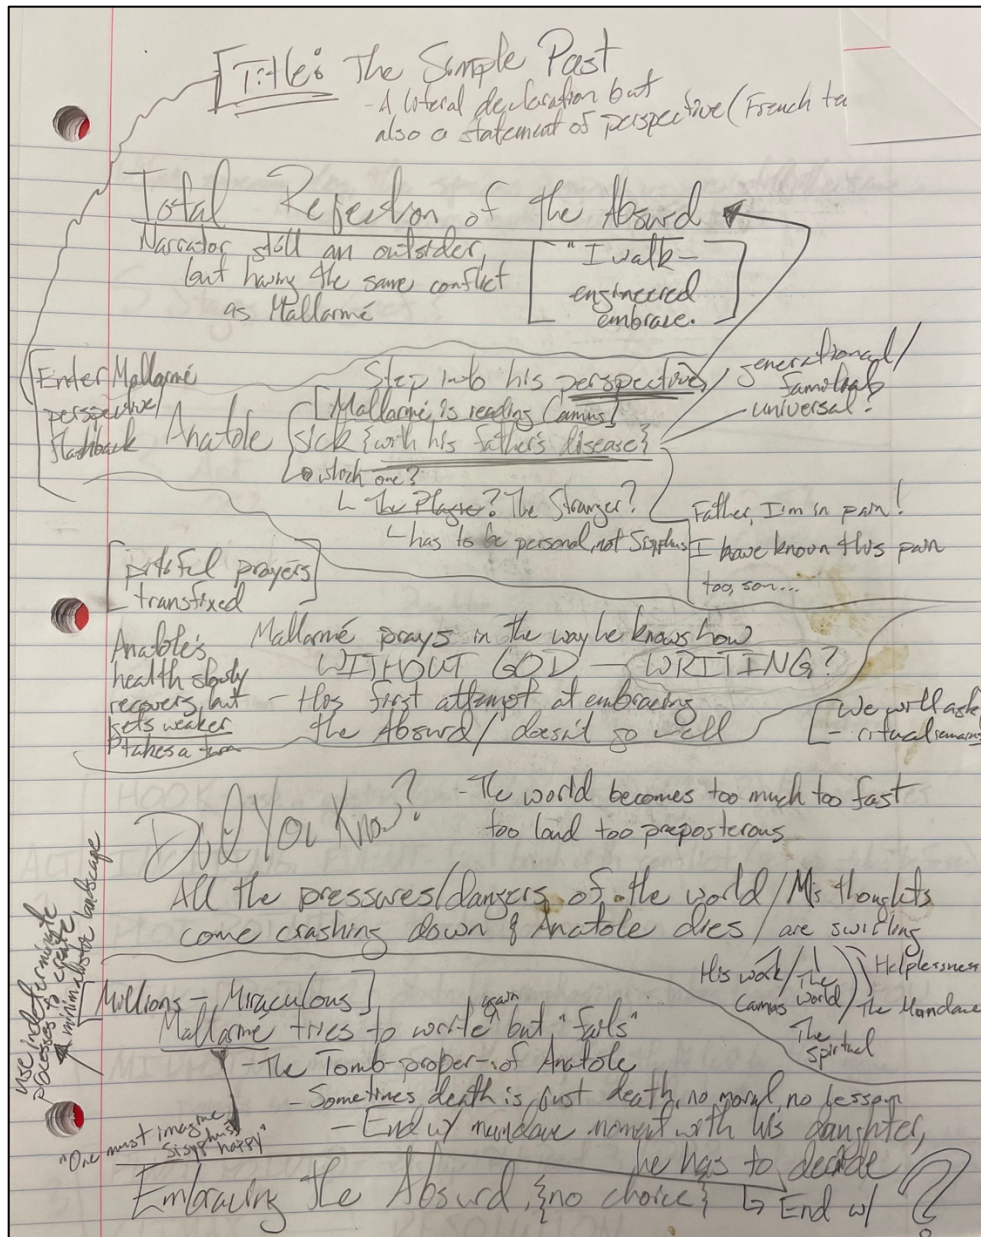 Title: The Simple Past
- A literal declaration but
also a statement of perspective (French te
Total Rejection of the Absurd
Narrator still an outsider,
but having the same conflict
as Mallarmé
"I walk –
engineered
embrace.
Enter Mallarmé
perspective/
flashback
Step into his perspective/
[Mallarmé is reading Camus]
Anatole sick {with his father's disease}
generational/
familial?
universal?
which one?
The Plague? The Stranger?
has to be personal, not Sisyphus
Father, I'm in pain!
I have known this pain
too, son...
pitiful prayers
transfixed
Anatole's
health slowly
recovers, but
gets weaker
takes a turn
Mallarmé prays in the way he knows how
WITHOUT GOD – WRITING?
- His first attempt at embracing
the Absurd/ doesn't go well
[We will ask
- ritual remains
Did You Know?
- The world becomes too much too fast
too loud too preposterous
All the pressures/dangers of the world/M's thoughts
come crashing down & Anatole dies/ are swirling
His work/
Camus
The
world/
The
Spiritual
Helplessness
The Mundane
use indeterminate
processes to create
minimalistic landscape
[Millions – Miraculous]
Mallarmé tries to write again but "fails"
- The Tomb proper – of Anatole
- Sometimes death is just death, no moral no lesson
- End w/ mundane moment with his daughter,
he has to decide
"One must imagine
Sisyphus happy"
Embracing the Absurd, {no choice}
End w/ ?